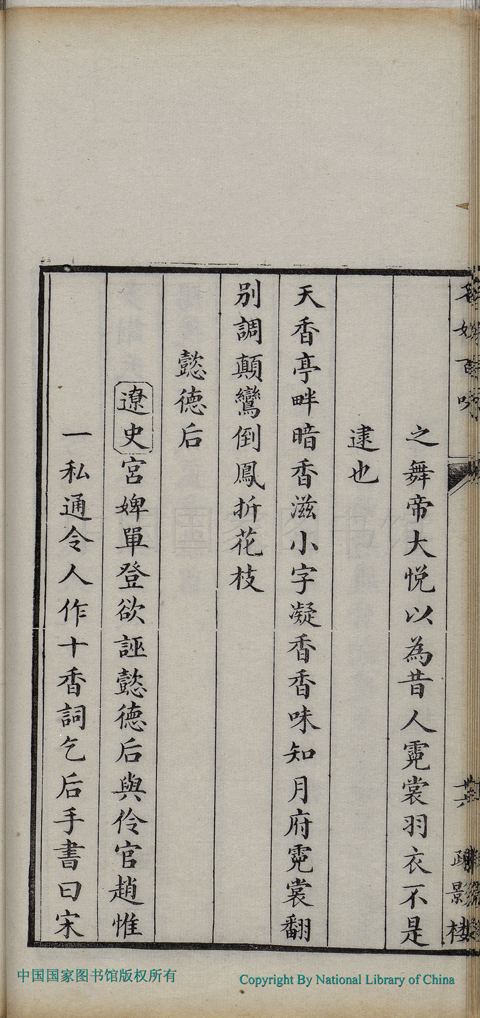 之舞帝大悅以為昔人霓裳羽衣不是
逮也
天香亭畔暗香滋小字凝香香味知月府霓裳翻
別調顛鸞倒鳳折花枝
懿德后
遼史宮婢單登欲誣懿德后與伶官趙惟
一私通令人作十香詞乞后手書曰宋
疏景樓
中国国家图书馆版权所有
Copyright By National Library of China